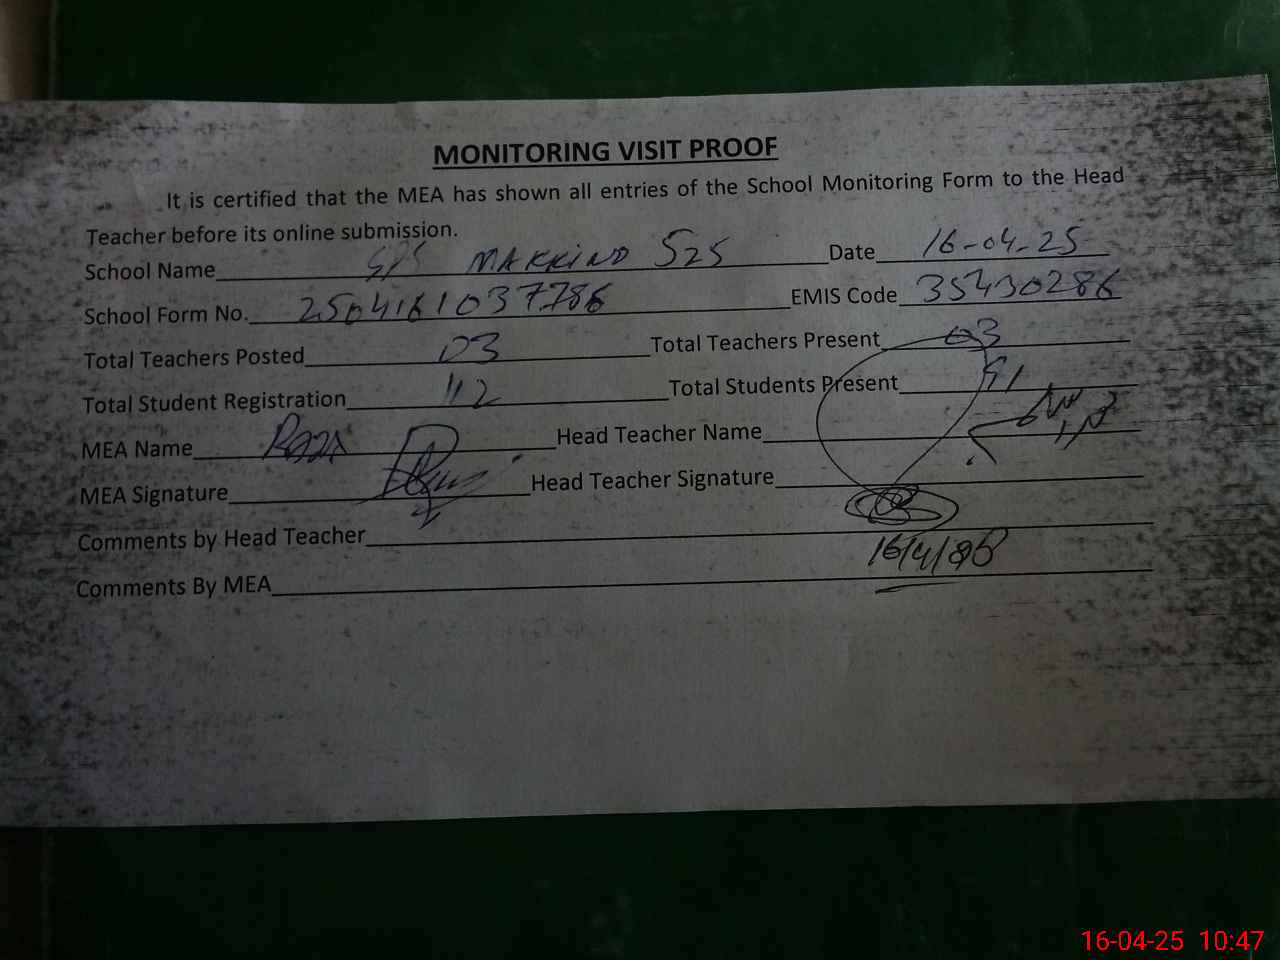 MONITORING VISIT PROOF
It is certified that the MEA has shown all entries of the School Monitoring Form to the Head
Teacher before its online submission.
School Name GPS MAKKIND 525 Date 16-04-25
School Form No. 2504161037786 EMIS Code 35430286
Total Teachers Posted 03 Total Teachers Present 03
Total Student Registration 112 Total Students Present 91
MEA Name Raza Head Teacher Name
MEA Signature Head Teacher Signature
Comments by Head Teacher
16/4/25
Comments By MEA
16-04-25 10:47